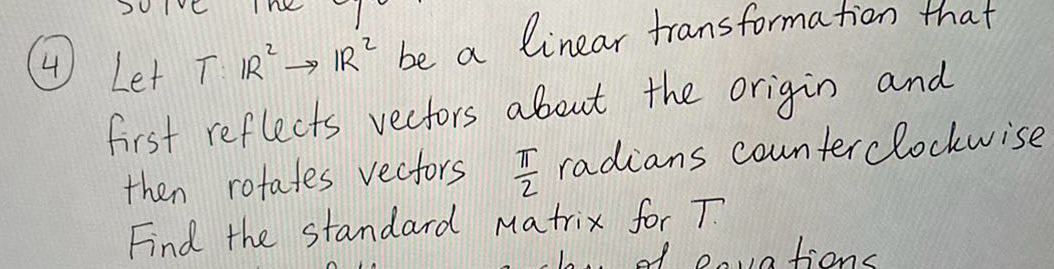 ④ Let T: ℝ² → ℝ² be a linear transformation that
first reflects vectors about the origin and
then rotates vectors π/2 radians counterclockwise
Find the standard matrix for T.